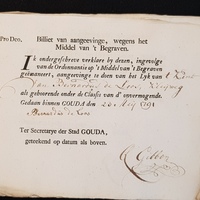 Pro Deo,
Billiet van aangeevinge, wegens het
Middel van 't Begraven.
Ik ondergeschreve verklare by dezen, ingevolge
van de Ordonnantie op 't Middel van 't Begraven
geëmaneert, aangevinge te doen van het Lyk van 't Kind
van
als gehoorende onder de Classis van d' onvermogende
Gedaan binnen GOUDA, den 20 May 1791
Ter Secretarye der Stad GOUDA,
geteekend op datum als boven.